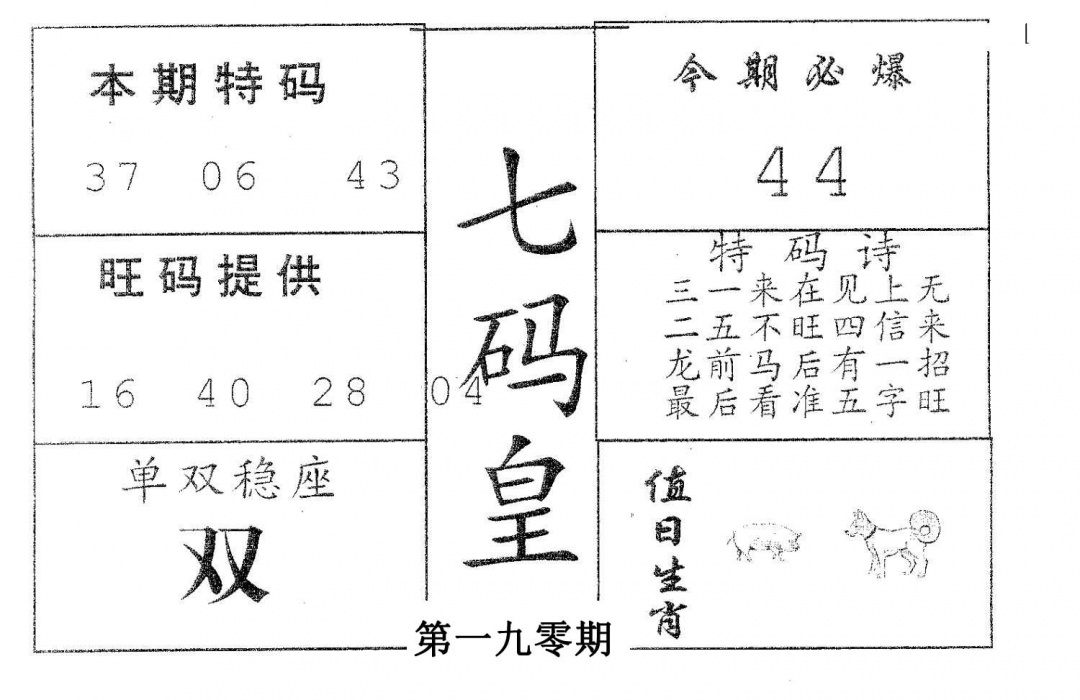 本期特码
37 06 43
旺码提供
16 40 28 04
单双稳座
双
七码皇
今期必爆
44
特码诗
三一来在见上无
二五不旺四信来
龙前马后有一招
最后看准五字旺
值日生肖
第一九零期